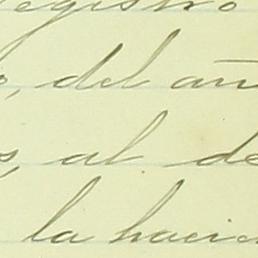 registro
, del añ
s, al de
la hacien